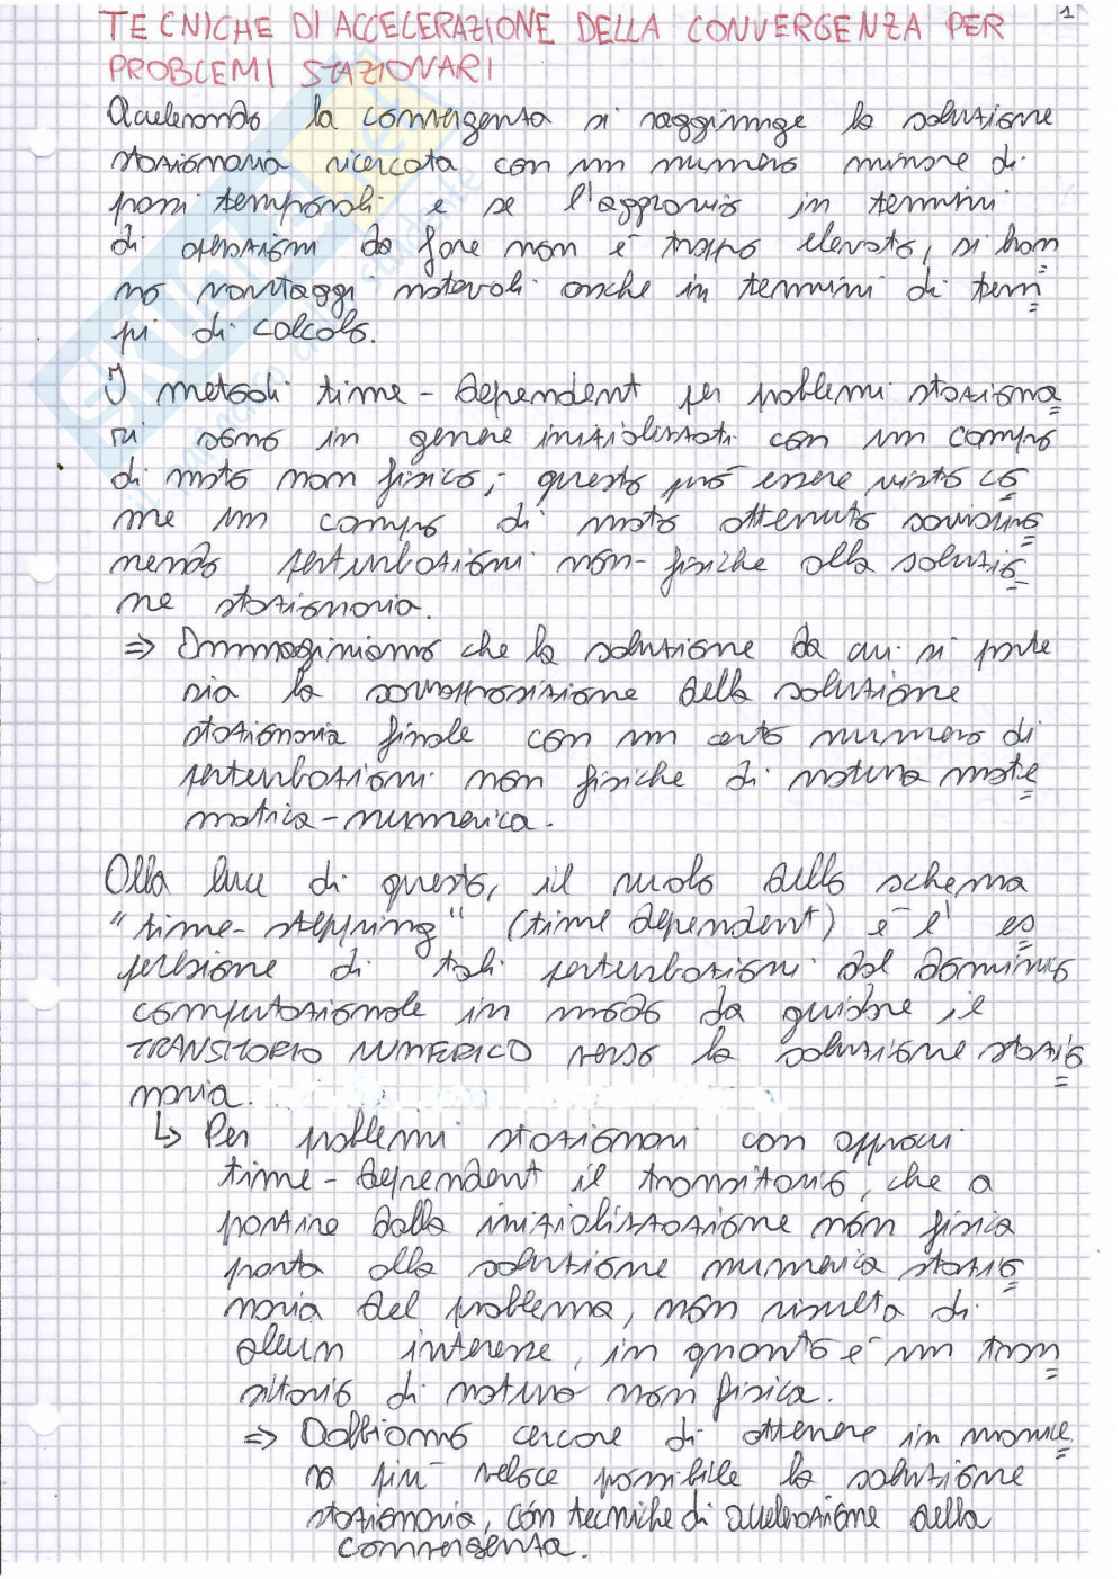 1
TECNICHE DI ACCELERAZIONE DELLA CONVERGENZA PER
PROBLEMI STAZIONARI
Accelerando la convergenza si raggiunge la soluzione
stazionaria ricercata con un numero minore di
passi temporali e se l'aggravio in termini
di operazioni da fare non è troppo elevato, si han
no vantaggi notevoli anche in termini di tem
pi di calcolo.
I metodi time-dependent per problemi staziona
ri sono in genere inizializzati con un campo
di moto non fisico; questo può essere visto co
me un campo di moto ottenuto sovrappo
nendo perturbazioni non-fisiche alla soluzio
ne stazionaria.
⇒ Immaginiamo che la soluzione da cui si parte
sia la sovrapposizione della soluzione
stazionaria finale con un certo numero di
perturbazioni non fisiche di natura mate
matica-numerica.
Alla luce di questo, il ruolo dello schema
"time-stepping" (time dependent) è l'es
pulsione di tali perturbazioni dal dominio
computazionale in modo da guidare il
TRANSITORIO NUMERICO verso la soluzione stazio
naria.
↳ Per problemi stazionari con approcci
time-dependent il transitorio, che a
partire dalla inizializzazione non fisica
porta alla soluzione numerica stazio
naria del problema, non risulta di
alcun interesse, in quanto è un tran
sitorio di natura non fisica.
⇒ Dobbiamo cercare di ottenere in manie
ra più veloce possibile la soluzione
stazionaria, con tecniche di accelerazione della
convergenza.